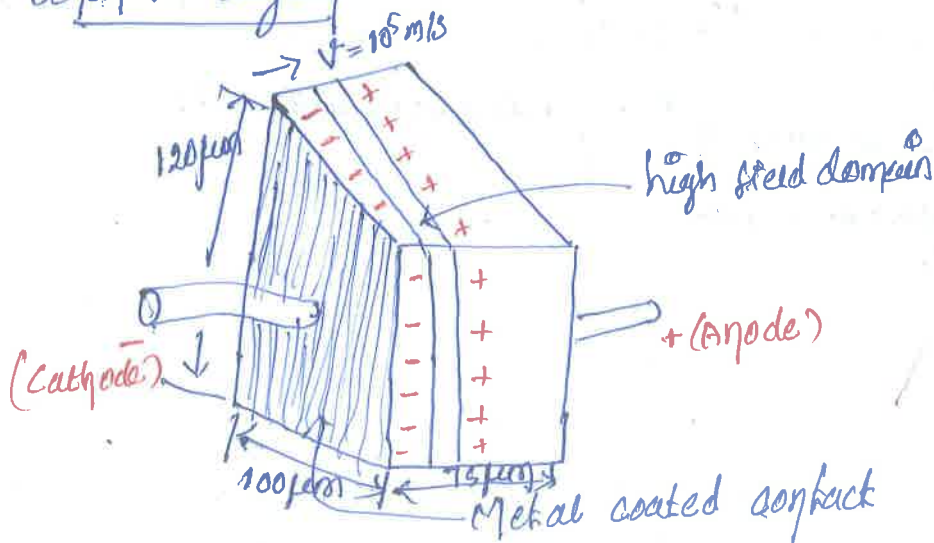 v = 10⁵ m/s
120μm
high field domain
+ (Anode)
(Cathode)
100μm
15μm
Metal coated contact